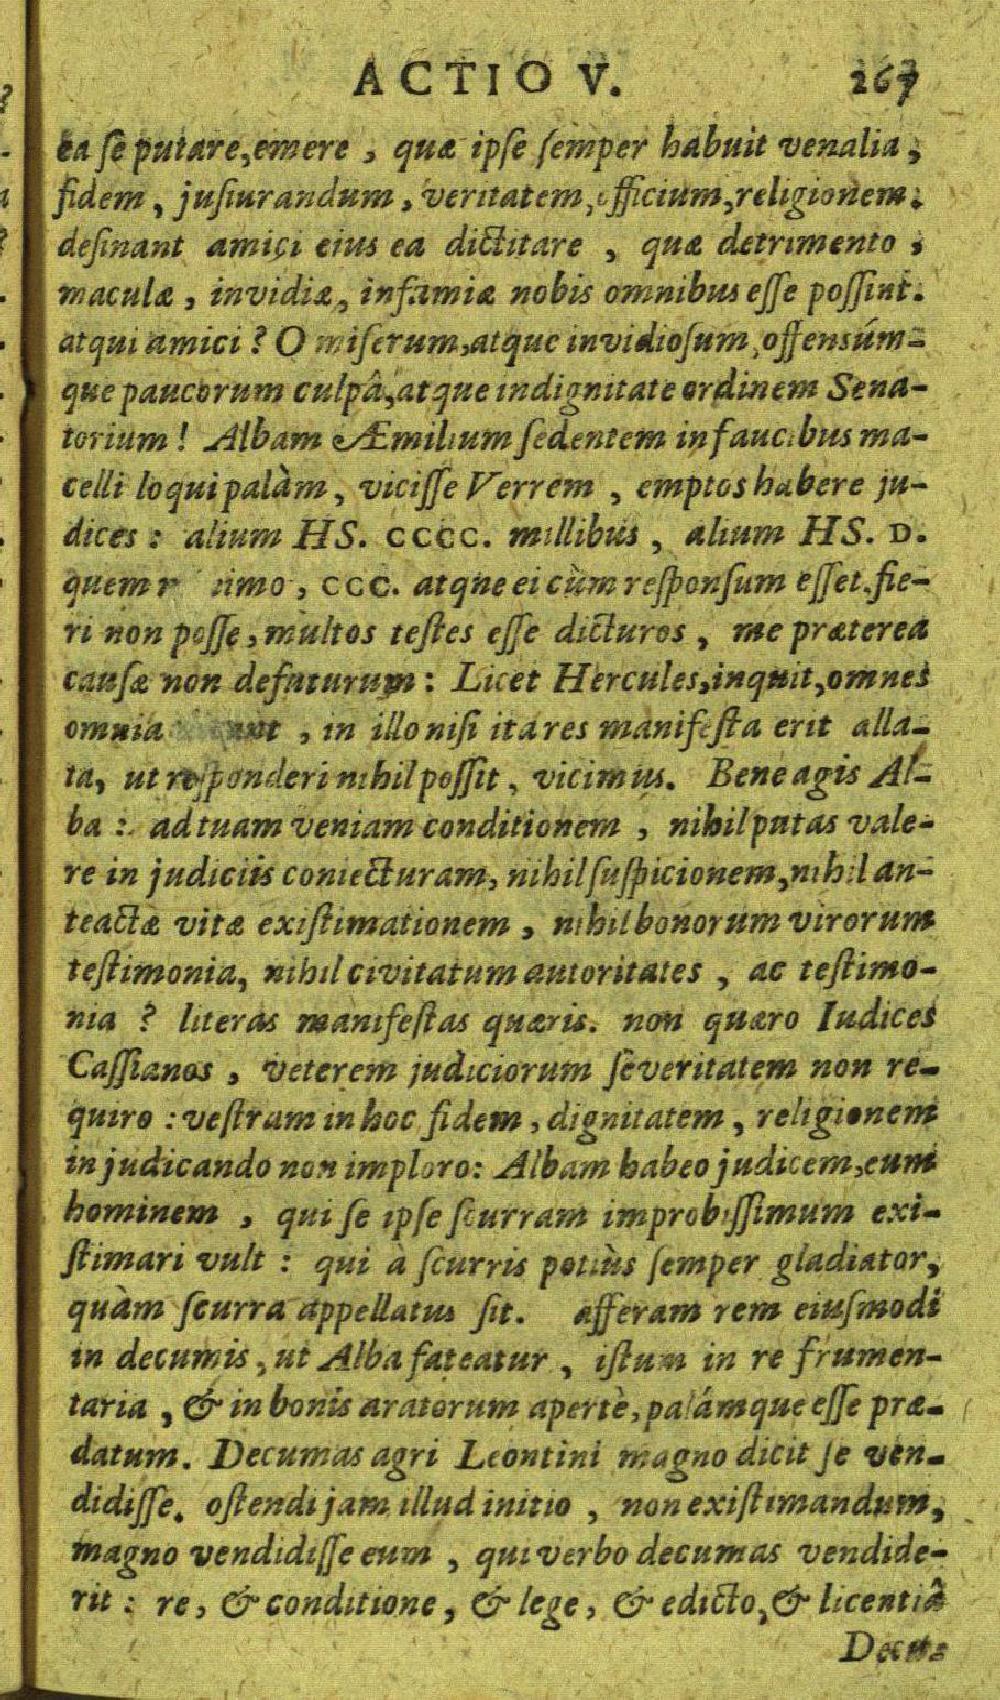 ACTIO V. 267
ea se putare, emere, quæ ipse semper habuit venalia,
fidem, jusiurandum, veritatem, officium, religionem.
desinant amici eius ea dictitare, quæ detrimento,
maculæ, invidiæ, infamiæ nobis omnibus esse possint.
atqui amici? O miserum, atque invidiosum, offensúm-
que paucorum culpâ, atque indignitate ordinem Sena-
torium! Albam Æmilium sedentem in faucibus ma-
celli loqui palàm, vicisse Verrem, emptos habere ju-
dices: alium HS. CCCC. millibus, alium HS. D.
quem CCC. atque ei cùm responsum esset, fie-
ri non posse, multos testes esse dicturos, me præterea
causæ non defuturum: Licet Hercules, inquit, omnes
omnia , in illo nisi ita res manifesta erit alla-
ta, ut responderi nihil possit, vicimus. Bene agis Al-
ba: ad tuam veniam conditionem, nihil putas vale-
re in judiciis coniecturam, nihil suspicionem, nihil an-
teactæ vitæ existimationem, nihil bonorum virorum
testimonia, nihil civitatum autoritates, ac testimo-
nia? literas manifestas quæris. non quæro Iudices
Cassianos, veterem judiciorum severitatem non re-
quiro: vestram in hoc fidem, dignitatem, religionem
in judicando non imploro: Albam habeo judicem, eum
hominem, qui se ipse scurram improbissimum exi-
stimari vult: qui à scurris potiùs semper gladiator,
quàm scurra appellatus sit. afferam rem eiusmodi
in decumis, ut Alba fateatur, istum in re frumen-
taria, & in bonis aratorum apertè, palámque esse præ-
datum. Decumas agri Leontini magno dicit se ven-
didisse. ostendi jam illud initio, non existimandum,
magno vendidisse eum, qui verbo decumas vendide-
rit: re, & conditione, & lege, & edicto, & licentiâ